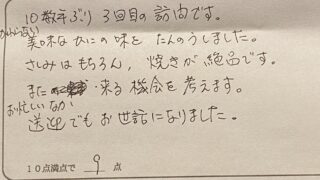 10数年ぶり 3回目の訪問です。
かわらない
美味なかにの味をたんのうしました。
さしみはもちろん、焼きが絶品です。
また 来る機会を考えます。
お忙しいなか
送迎でもお世話になりました。
10点満点で 9 点